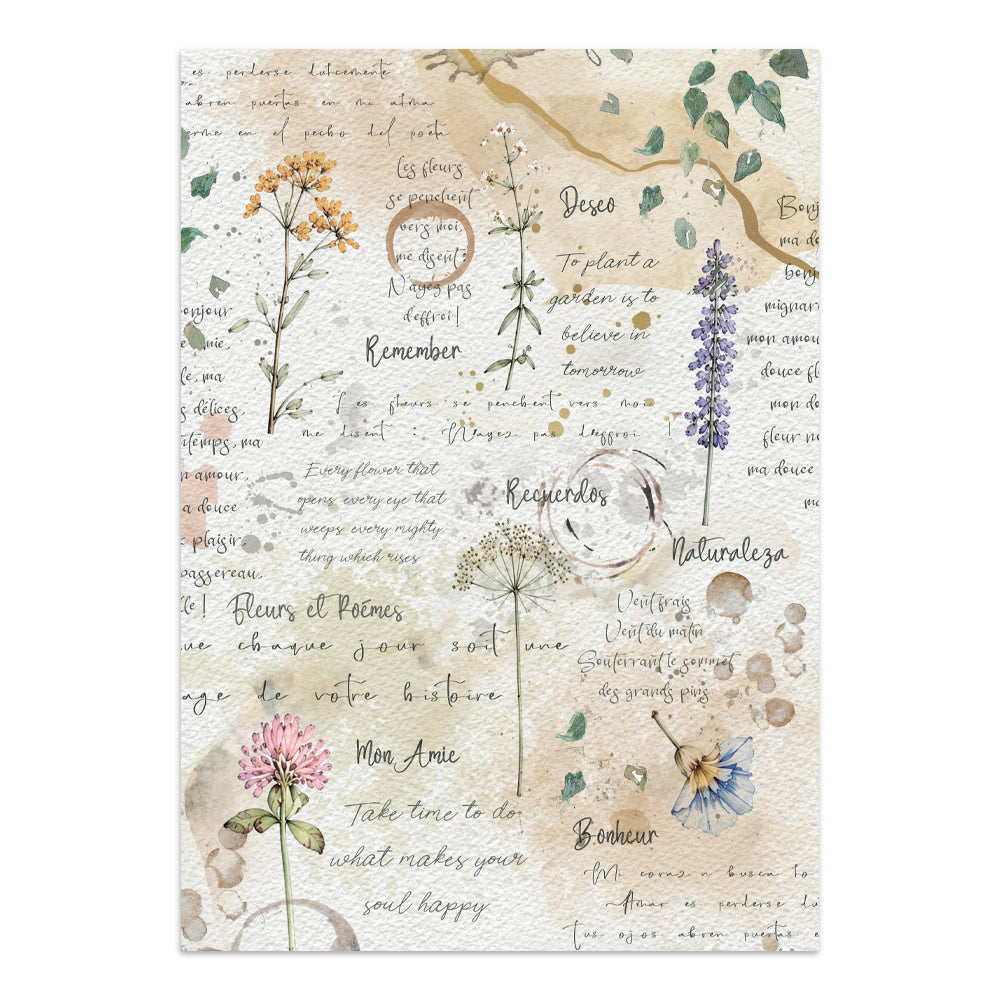 es perderse dulcemente
abren puertas en mi alma
erme en el pecho del poeta
Les fleurs
se penchent
vers moi,
me disent:
N'ayez pas
d'effroi!
Deseo
To plant a
garden is to
believe in
tomorrow
Bonj
ma do
bonj
mignar
mon amou
douce fl
mon do
fleur no
ma douce
mo
onjour
e mie,
le, ma
s délices,
ntemps, ma
n amour,
a douce
e plaisir,
passereau,
lle!
Remember
Les fleurs se penchent vers moi
me disent : N'ayez pas d'effroi !
Every flower that
opens, every eye that
weeps, every mighty
thing which rises
Recuerdos
Naturaleza
Fleurs et Poémes
ue chaque jour soit une
age de votre histoire
Vent frais
Vent du matin
Souterrant le sommet
des grands pins
Mon Amie
Take time to do
what makes your
soul happy
Bonheur
Mi coraz n busca to
Amar es perderse du
tus ojos abren puertas e